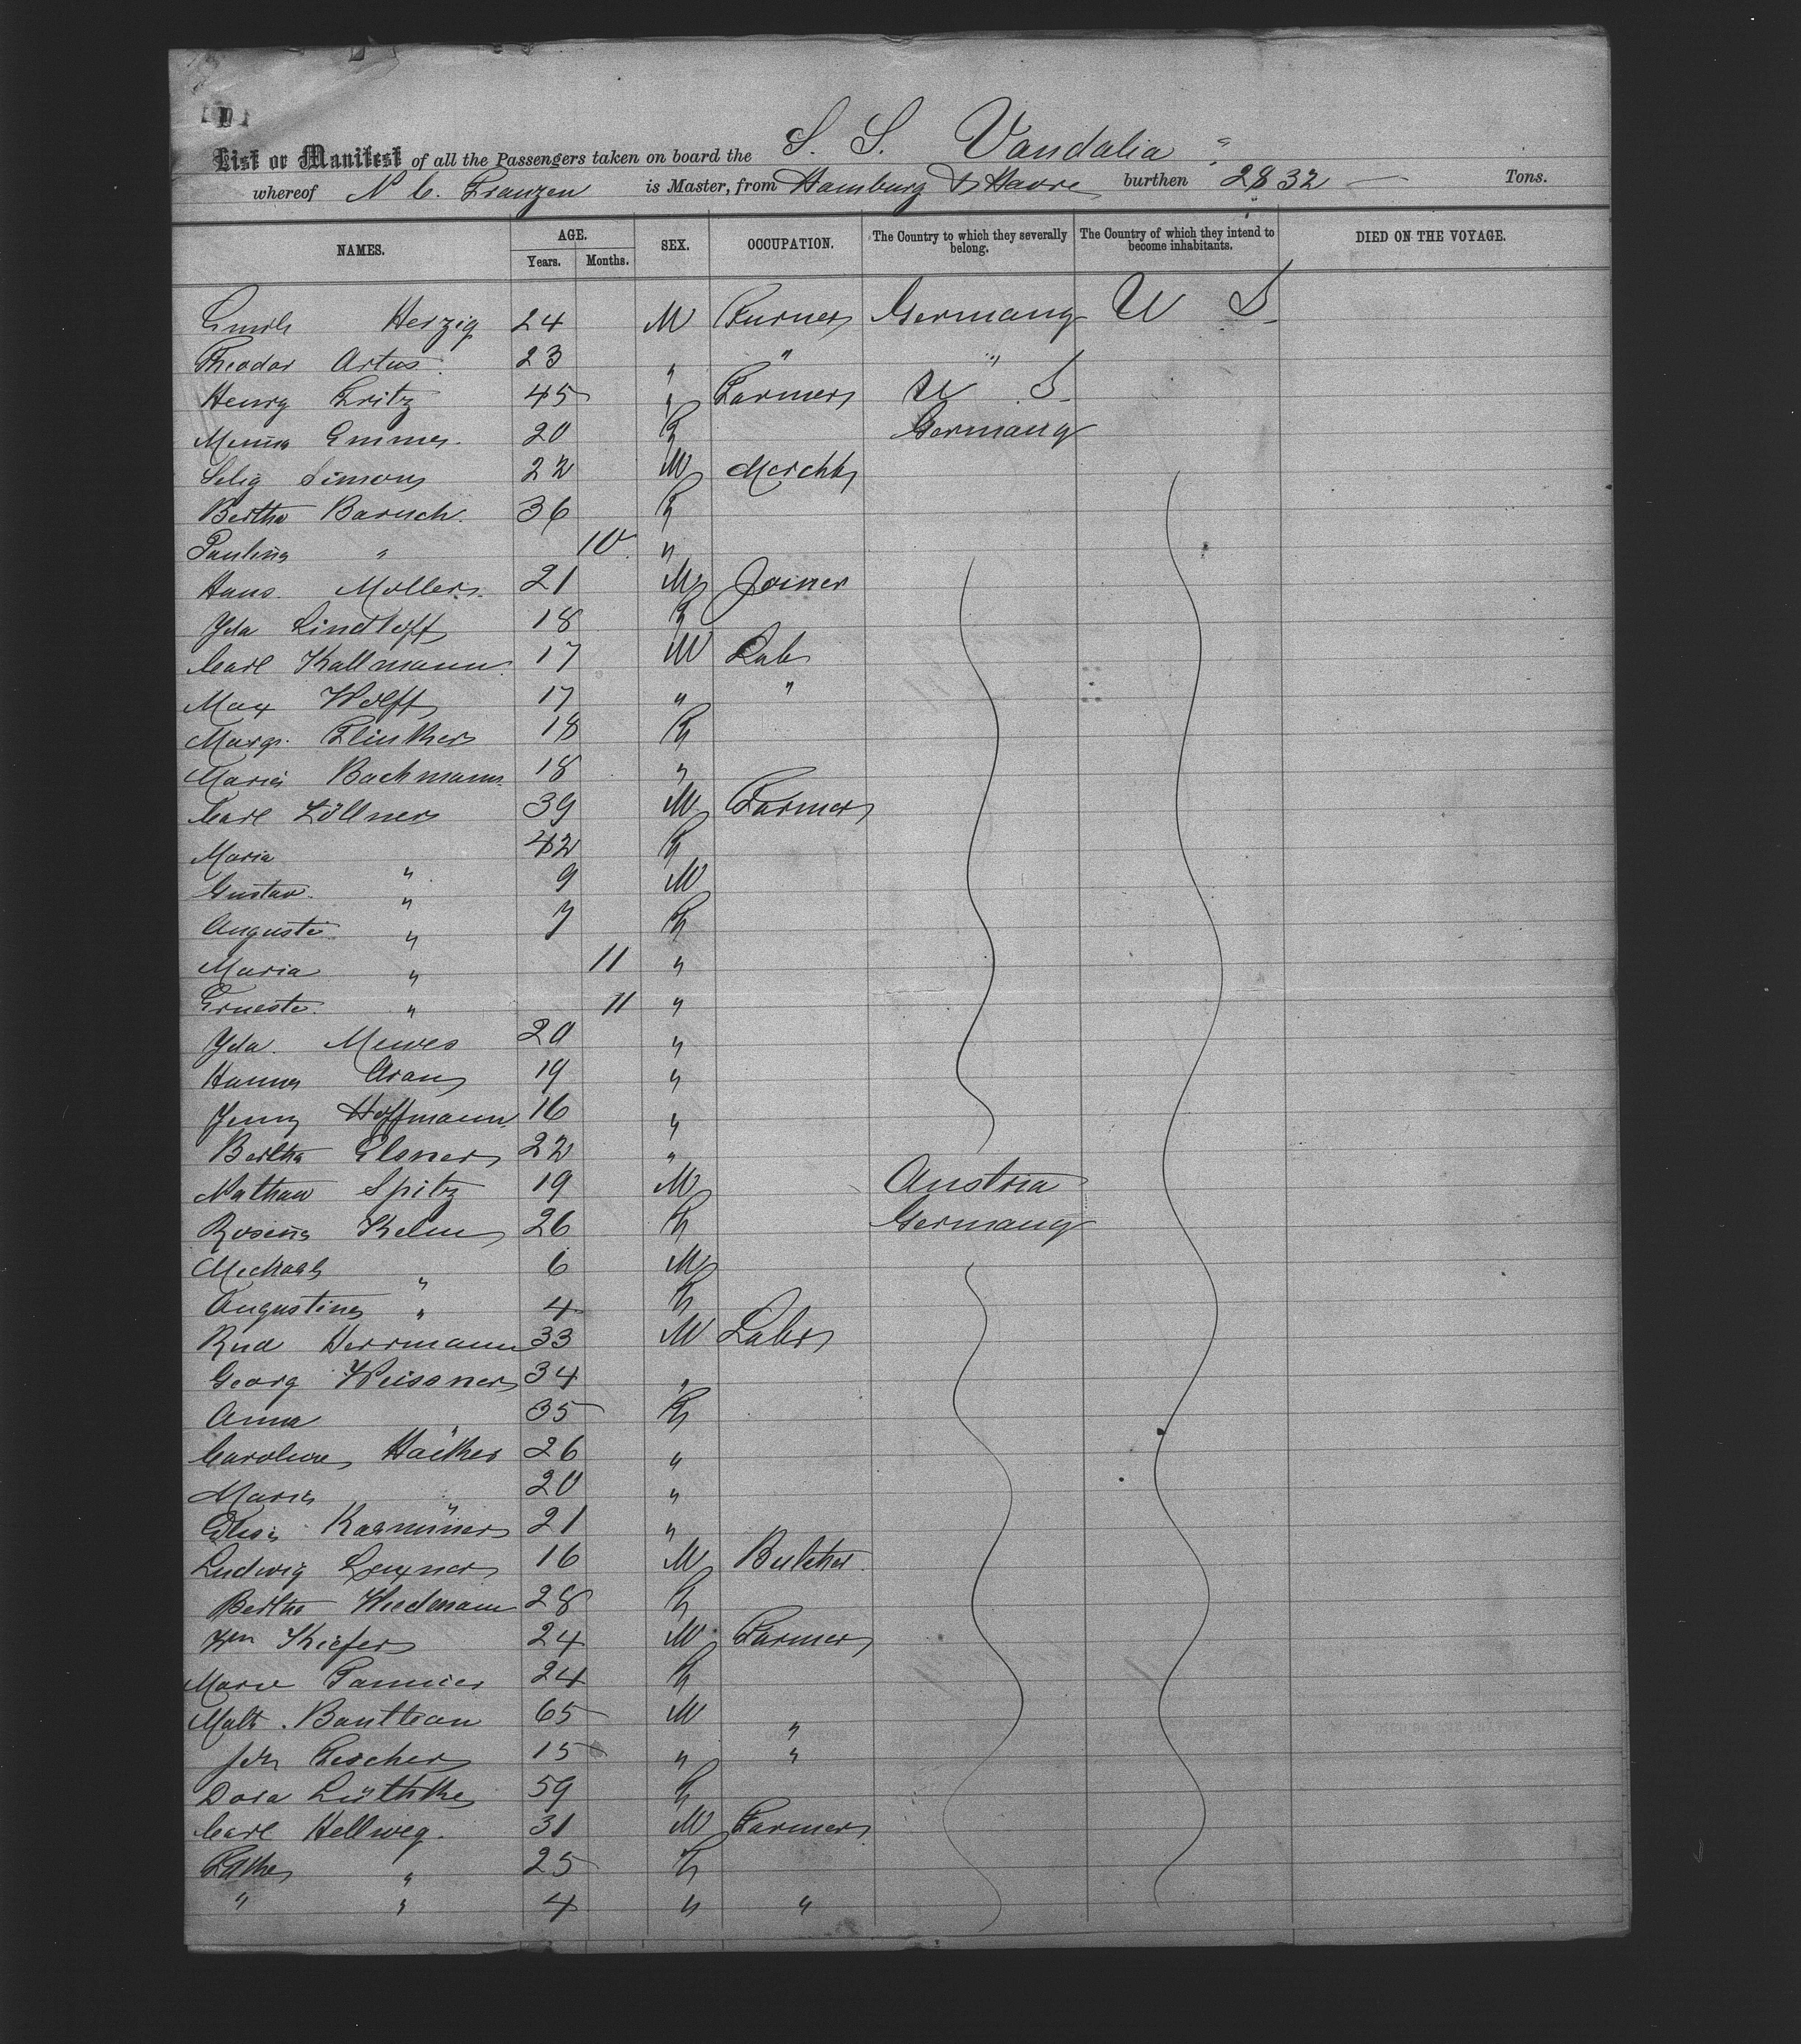 List or Manifest of all the Passengers taken on board the S. S. Vandalia
whereof N C. Franzen is Master, from Hamburg & Havre burthen 2832 — Tons.
NAMES. AGE. SEX. OCCUPATION. The Country to which they severally belong. The Country of which they intend to become inhabitants. DIED ON THE VOYAGE.
Years. Months.
Herzig 24 M Turner Germany U S
Theodor Artus 23 " " "
Henry Fritz 45 " Farmer U S
Minna Emmer 20 F Germany
Selig Simon 22 M Mercht
Bertha Baruch. 36 F
Paulina " 10 "
Hans Moller 21 M Joiner
Ida Lindloff 18 F
Carl Kallmann 17 M Lab
Max Wolff 17 " "
Marg. Flinker 18 F
Maria Bachmann 18 "
Carl Zöllner 39 M Farmer
Maria " 42 F
Gustav " 9 M
Auguste " 7 F
Maria " 11 "
Erneste " 11 "
Ida Mewes 20 "
Hanna Aron 19 "
Jenny Hoffmann 16 "
Bertha Elsner 22 "
Nathan Spitz 19 M Austria
Rosina Kelm 26 F Germany
Michael " 6 M
Augustine " 4 F
Rud Herrmann 33 M Labr
Georg Weissner 34 "
Anna " 35 F
Caroline 26 "
Maria " 20 "
21 "
Ludwig 16 M Butcher
Bertha Wiedemann 28 F
Wm Kiefer 24 M Farmer
Marie 24 F
Math. 65 M "
Joh Fischer 15 " "
Dora Lüthke 59 F
Carl Hellweg. 31 M Farmer
" 25 F
" " 4 " "